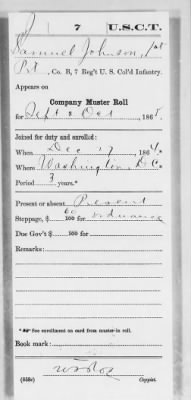 7 U.S.C.T.
Samuel Johnson, 1st
Pvt, Co. B, 7 Reg't U. S. Col'd Infantry.
Appears on
Company Muster Roll
for Sept & Oct, 186
Joined for duty and enrolled:
When Dec 17, 186
Where Washington, D.C.
Period 3 years.*
Present or absent Present
Stoppage, $ 60/100 for ordnance
Due Gov't $ /100 for
Remarks:
* See enrollment on card from muster-in roll.
Book mark:
(358c) Copyist.